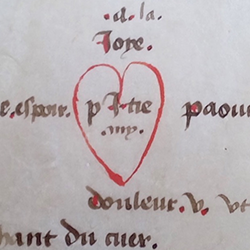 .a. la.
Joye.
e. espoir. pItie paour
.my.
douleur. v. vt
hant du cuer.